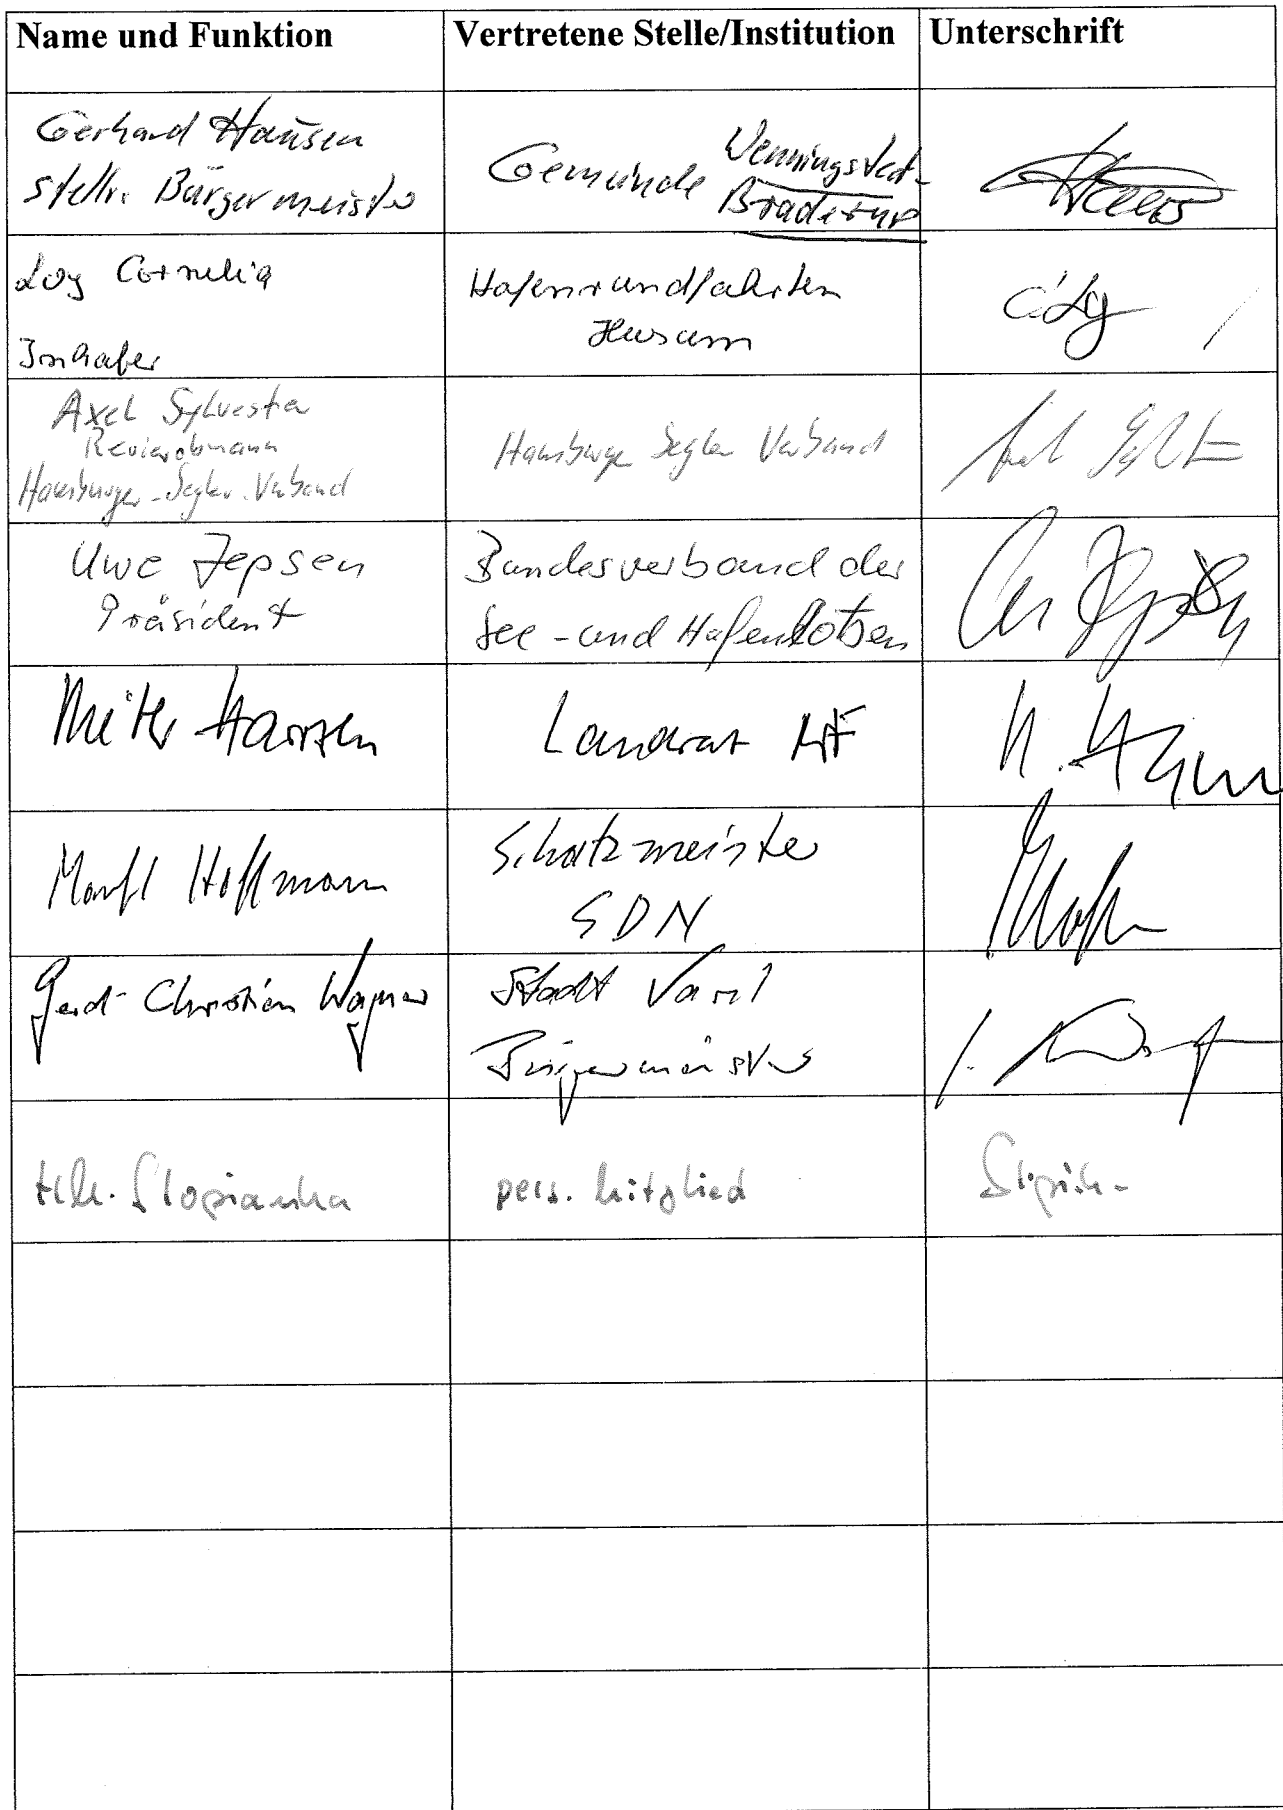 Name und Funktion
Vertretene Stelle/Institution
Unterschrift
Gerhard Hansen
stellv. Bürgermeister
Gemeinde Wenningstedt-
Braderup
Loy Cornelia
Inhaber
Hafenrundfahrten
Husum
C. Loy
Axel Sylvester
Revierobmann
Hamburger-Segler-Verband
Hamburger Segler Verband
Uwe Jepsen
Präsident
Bundesverband der
See- und Hafenlotsen
Harrsen
Landrat NF
Hoffmann
Schatzmeister
SDN
Gerd-Christian Wagner
Stadt Varel
Bürgermeister
Slopianka
pers. Mitglied